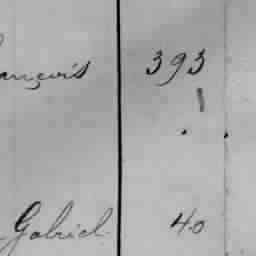 ançois 393
Gabriel 40